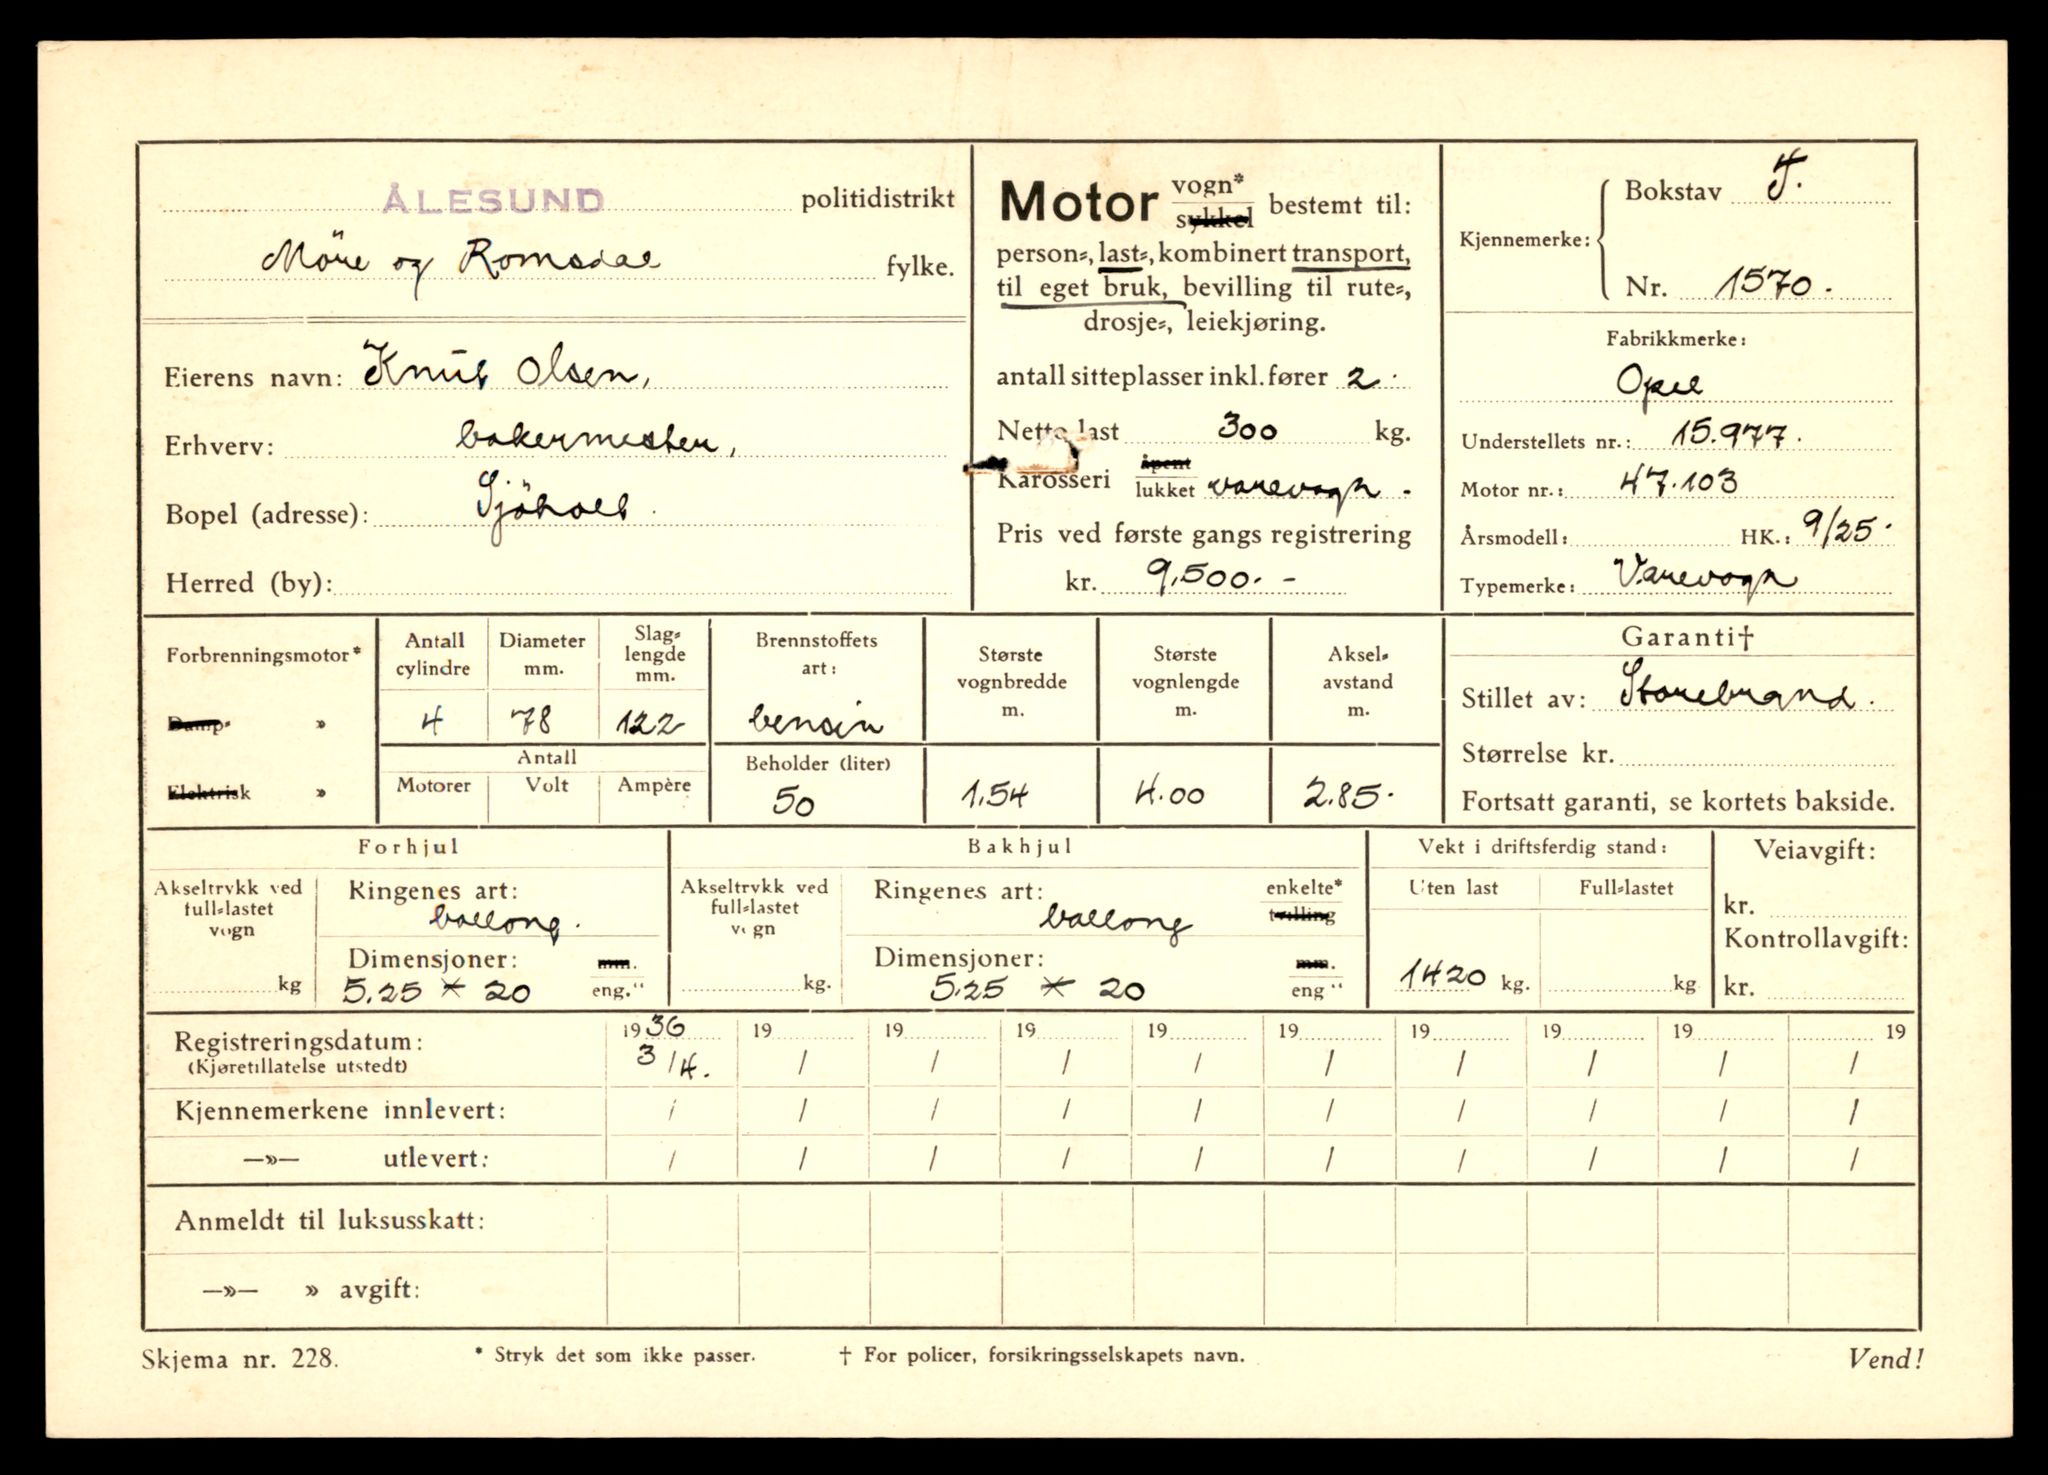 ÅLESUND politidistrikt
Möre og Romsdal fylke.
Eierens navn: Knut Olsen,
Erhverv: bakermester,
Bopel (adresse): Sjöholt.
Herred (by):
Motor vogn* sykkel bestemt til:
person-, last-, kombinert transport,
til eget bruk, bevilling til rute-,
drosje-, leiekjøring.
antall sitteplasser inkl. fører 2.
Netto last 300 kg.
Karosseri åpent lukket varevogn.
Pris ved første gangs registrering
kr. 9.500.-
Kjennemerke: Bokstav T.
Nr. 1570.
Fabrikkmerke:
Opel
Understellets nr.: 15.977.
Motor nr.: 47.103
Årsmodell: HK.: 9/25.
Typemerke: Varevogn
Forbrenningsmotor*
Damp- »
Elektrisk »
Antall cylindre
4
Diameter mm.
78
Slag-lengde mm.
122
Antall
Motorer Volt Ampère
Brennstoffets art:
bensin
Beholder (liter)
50
Største vognbredde m.
1.54
Største vognlengde m.
4.00
Aksel-avstand m.
2.85.
Garanti†
Stillet av: Storebrand.
Størrelse kr.
Fortsatt garanti, se kortets bakside.
Forhjul
Akseltrykk ved full-lastet vogn
kg
Ringenes art:
ballong.
Dimensjoner: mm.
5.25 x 20 eng."
Bakhjul
Akseltrykk ved full-lastet vogn
kg.
Ringenes art: enkelte*
ballong tvilling
Dimensjoner: mm.
5.25 x 20 eng "
Vekt i driftsferdig stand:
Uten last Full-lastet
1420 kg. kg
Veiavgift:
kr.
Kontrollavgift:
kr.
Registreringsdatum: 1936 19 19 19 19 19 19 19 19 19
(Kjøretillatelse utstedt) 3/4. / / / / / / / / /
Kjennemerkene innlevert: / / / / / / / / / /
—»— utlevert: / / / / / / / / / /
Anmeldt til luksusskatt:
—»— » avgift:
Skjema nr. 228. * Stryk det som ikke passer. † For policer, forsikringsselskapets navn. Vend!